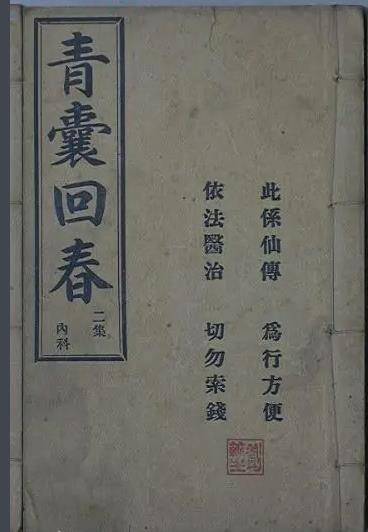 此係仙傳 為行方便
依法醫治 切勿索錢
青囊回春
二集
內科